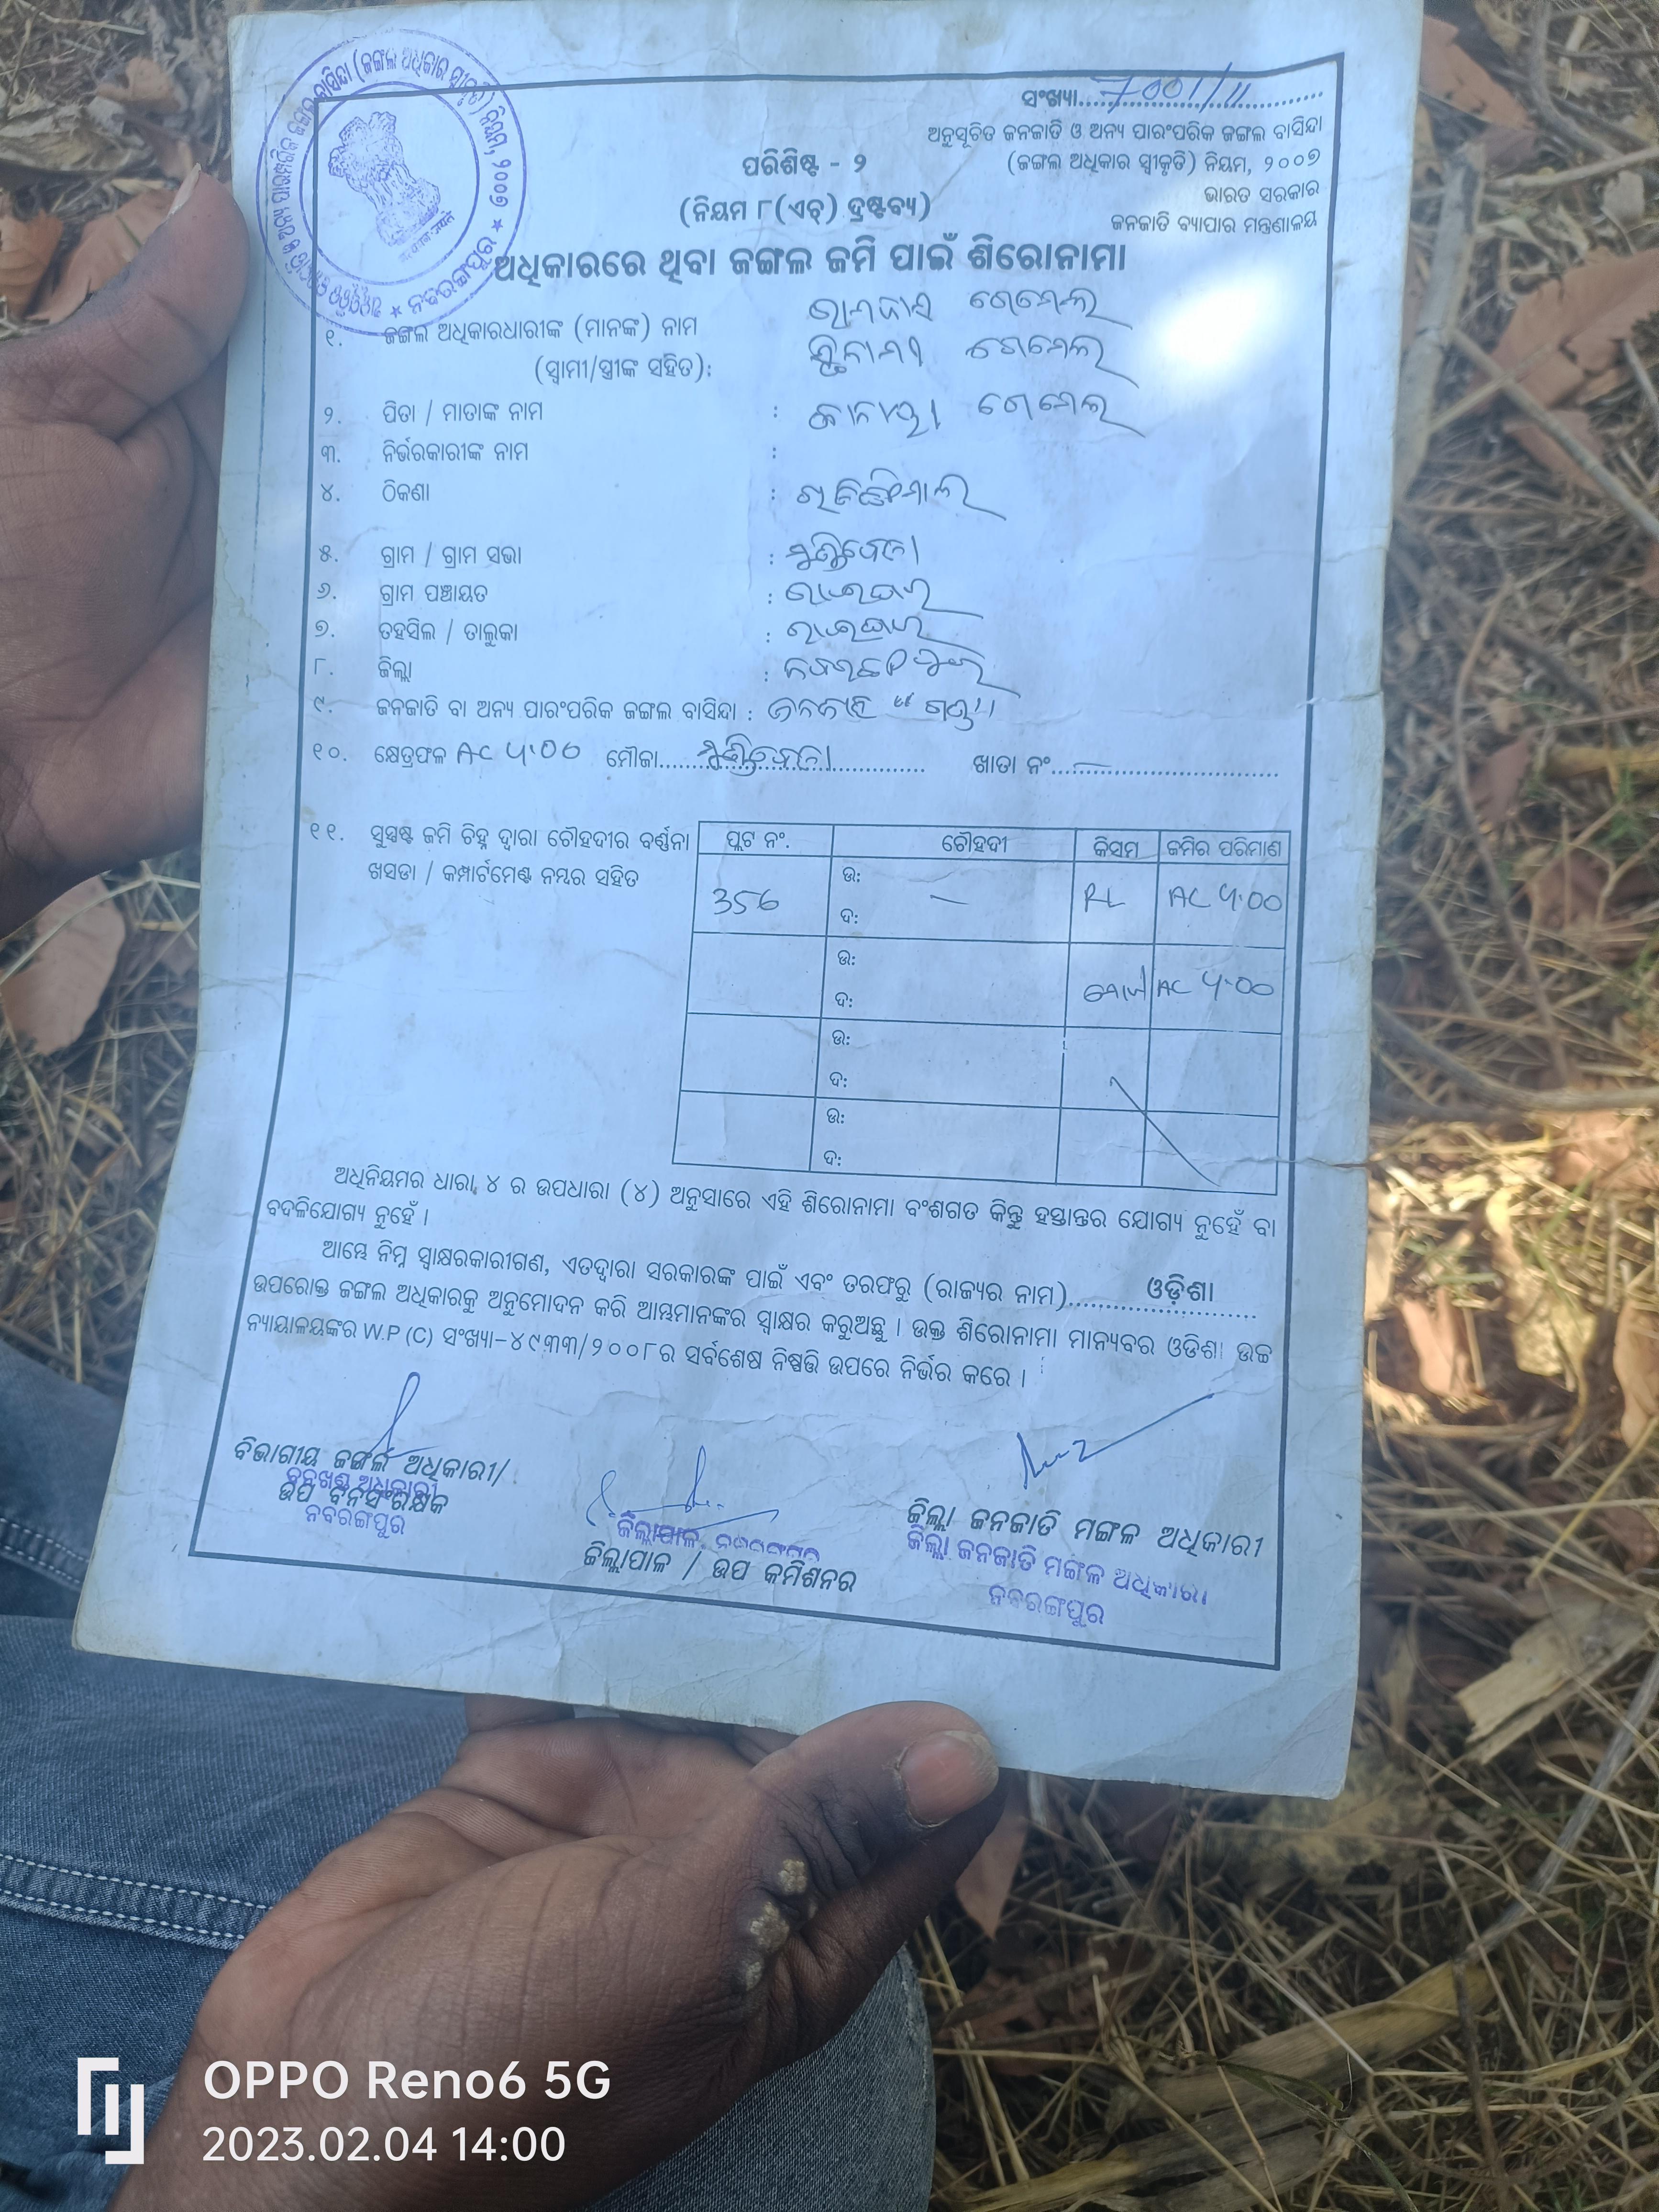 ସଂଖ୍ୟା....7001/11....
ଅନୁସୂଚିତ ଜନଜାତି ଓ ଅନ୍ୟ ପାରଂପରିକ ଜଙ୍ଗଲ ବାସିନ୍ଦା
(ଜଙ୍ଗଲ ଅଧିକାର ସ୍ୱୀକୃତି) ନିୟମ, ୨୦୦୭
ଭାରତ ସରକାର
ଜନଜାତି ବ୍ୟାପାର ମନ୍ତ୍ରଣାଳୟ
ପରିଶିଷ୍ଟ - ୨
(ନିୟମ ୮(ଏଚ୍) ଦ୍ରଷ୍ଟବ୍ୟ)
ଅଧିକାରରେ ଥିବା ଜଙ୍ଗଲ ଜମି ପାଇଁ ଶିରୋନାମା
୧. ଜଙ୍ଗଲ ଅଧିକାରଧାରୀଙ୍କ (ମାନଙ୍କ) ନାମ
(ସ୍ୱାମୀ/ସ୍ତ୍ରୀଙ୍କ ସହିତ):
୨. ପିତା / ମାତାଙ୍କ ନାମ :
୩. ନିର୍ଭରକାରୀଙ୍କ ନାମ :
୪. ଠିକଣା :
୫. ଗ୍ରାମ / ଗ୍ରାମ ସଭା :
୬. ଗ୍ରାମ ପଞ୍ଚାୟତ : ରାଇଘର
୭. ତହସିଲ / ତାଲୁକା : ରାଇଘର
୮. ଜିଲ୍ଲା : ନବରଙ୍ଗପୁର
୯. ଜନଜାତି ବା ଅନ୍ୟ ପାରଂପରିକ ଜଙ୍ଗଲ ବାସିନ୍ଦା : ଜନଜାତି "ଗଣ୍ଡ"
୧୦. କ୍ଷେତ୍ରଫଳ AC ୪.00 ମୌଜା.... ଖାତା ନଂ....
୧୧. ସୁସ୍ପଷ୍ଟ ଜମି ଚିହ୍ନ ଦ୍ୱାରା ଚୌହଦୀର ବର୍ଣ୍ଣନା
ଖସଡା / କମ୍ପାର୍ଟମେଣ୍ଟ ନମ୍ବର ସହିତ
ପ୍ଲଟ ନଂ. ଚୌହଦୀ କିସମ ଜମିର ପରିମାଣ
356 ଉ: ଦ: — RL AC ୪.00
ଉ: ଦ: ମୋଟ AC ୪.00
ଉ:
ଦ:
ଉ:
ଦ:
ଅଧିନିୟମର ଧାରା ୪ ର ଉପଧାରା (୪) ଅନୁସାରେ ଏହି ଶିରୋନାମା ବଂଶଗତ କିନ୍ତୁ ହସ୍ତାନ୍ତର ଯୋଗ୍ୟ ନୁହେଁ ବା
ବଦଳିଯୋଗ୍ୟ ନୁହେଁ ।
ଆମ୍ଭେ ନିମ୍ନ ସ୍ୱାକ୍ଷରକାରୀଗଣ, ଏତଦ୍ଦ୍ୱାରା ସରକାରଙ୍କ ପାଇଁ ଏବଂ ତରଫରୁ (ରାଜ୍ୟର ନାମ)....ଓଡ଼ିଶା....
ଉପରୋକ୍ତ ଜଙ୍ଗଲ ଅଧିକାରକୁ ଅନୁମୋଦନ କରି ଆମ୍ଭମାନଙ୍କର ସ୍ୱାକ୍ଷର କରୁଅଛୁ । ଉକ୍ତ ଶିରୋନାମା ମାନ୍ୟବର ଓଡିଶା ଉଚ୍ଚ
ନ୍ୟାୟାଳୟଙ୍କର W.P (C) ସଂଖ୍ୟା-୪୯୩୩/୨୦୦୮ର ସର୍ବଶେଷ ନିଷ୍ପତ୍ତି ଉପରେ ନିର୍ଭର କରେ ।
ବିଭାଗୀୟ ଜଙ୍ଗଲ ଅଧିକାରୀ/
ବନଖଣ୍ଡ ଅଧିକାରୀ
ଉପ ବନସଂରକ୍ଷକ
ନବରଙ୍ଗପୁର
ଜିଲ୍ଲାପାଳ, ନବରଙ୍ଗପୁର
ଜିଲ୍ଲାପାଳ / ଉପ କମିଶନର
ଜିଲ୍ଲା ଜନଜାତି ମଙ୍ଗଳ ଅଧିକାରୀ
ଜିଲ୍ଲା ଜନଜାତି ମଙ୍ଗଳ ଅଧିକାରୀ
ନବରଙ୍ଗପୁର
OPPO Reno6 5G
2023.02.04 14:00